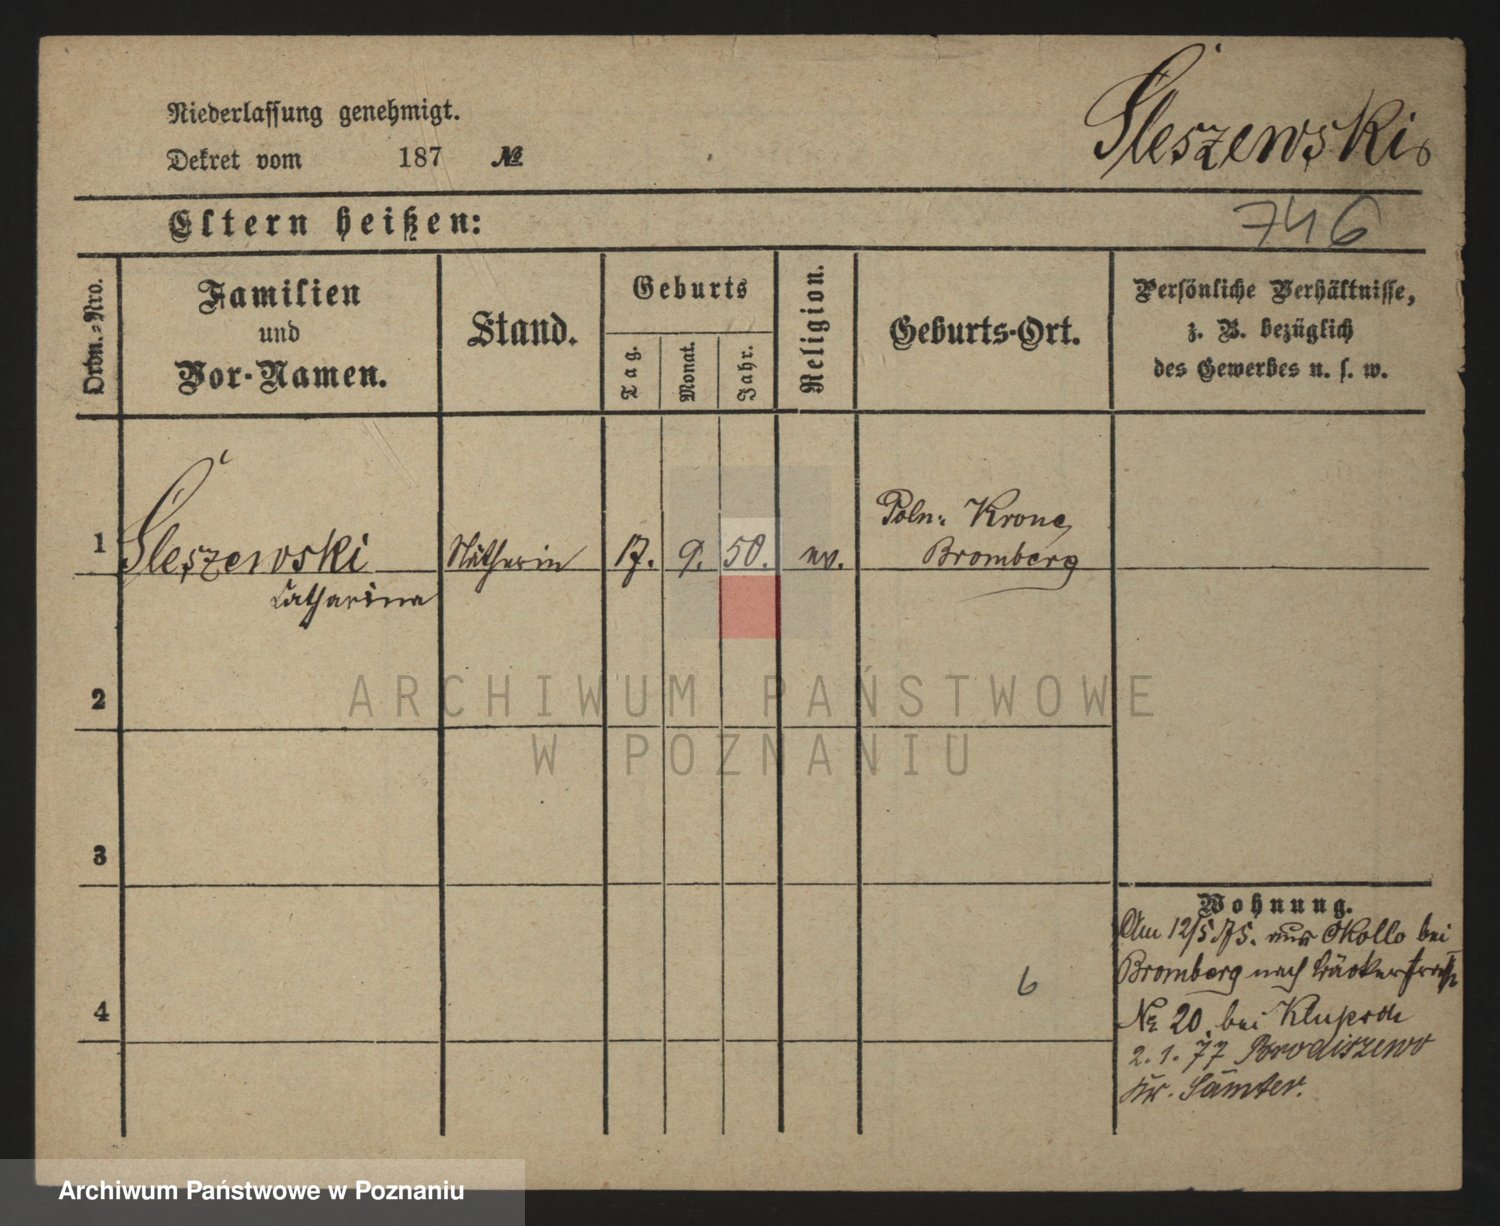 Niederlassung genehmigt.
Dekret vom 187 №
Śleszewski
Eltern heißen:
746
Ordn.-Nro.
Familien
und
Vor-Namen.
Stand.
Geburts
Tag.
Monat.
Jahr.
Religion.
Geburts-Ort.
Persönliche Verhältnisse,
z. B. bezüglich
des Gewerbes u. s. w.
1 Śleszewski
Catharina
Nätherin
17. 9. 50. ev.
Poln: Krone,
Bromberg
2
3
4
6
Wohnung.
Am 12/5 75. aus Okollo bei
Bromberg nach
№ 20. bei
2. 1. 77 Brodziszewo
Kr. Samter.
ARCHIWUM PAŃSTWOWE
W POZNANIU
Archiwum Państwowe w Poznaniu